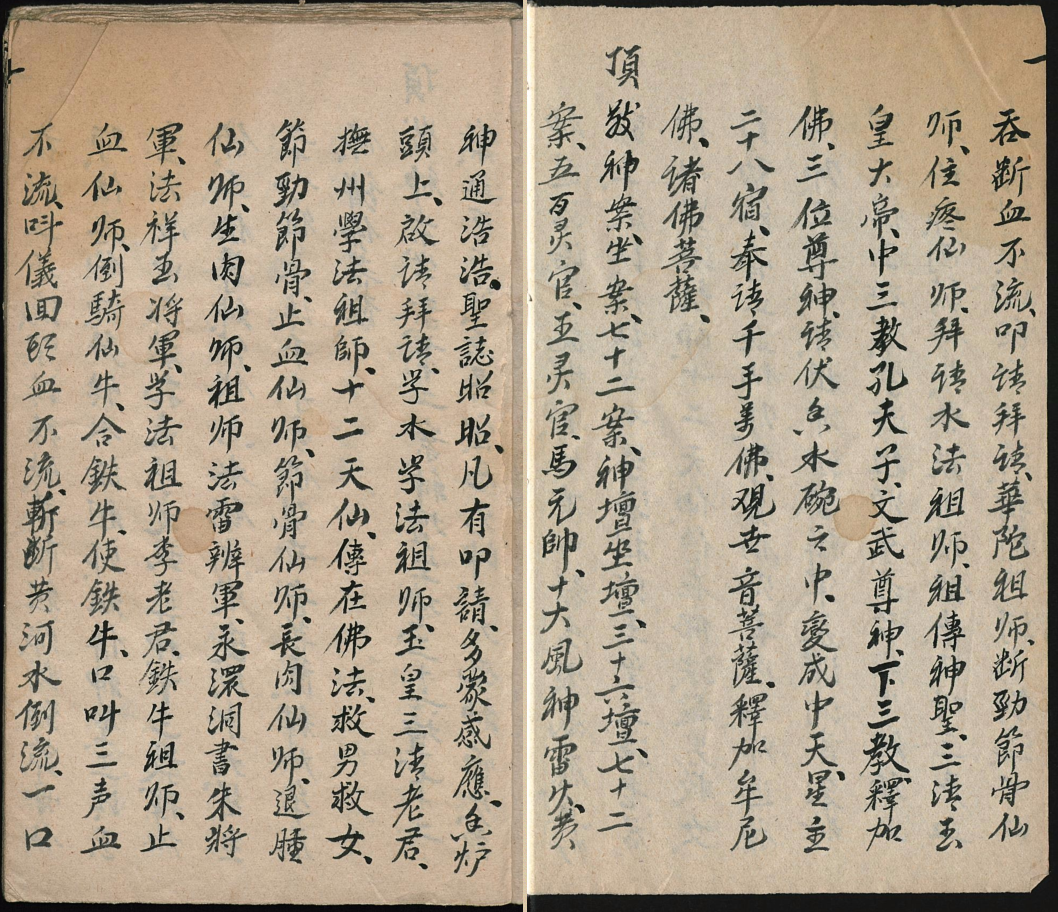 吞断血不流、叩请拜请、華陀祖师、断勁節骨仙
师、住疼仙师、拜请水法祖师、祖傳神聖、三清玉
皇大帝、中三教孔夫子、文武尊神、下三教、釋加
佛、三位尊神、请伏厶水碗之中、变成中天星主
二十八宿、奉请千手萬佛、观世音菩薩、釋加牟尼
佛、诸佛菩薩、
頂敬神案、坐案、七十二案、神壇坐壇、三十六壇、七十二
案、五百灵官、王灵官、馬元帥、十大風神雷火黄
神通浩浩、聖誌昭昭、凡有叩請、多蒙感應、厶炉
頭上、啟请拜请、学水学法祖师、玉皇三清老君、
撫州學法祖師、十二天仙、傳在佛法、救男救女、
節勁節骨、止血仙师、節骨仙师、長肉仙师、退腫
仙师、生肉仙师、祖师法雷辨軍、永濃洞書朱將
軍、法祥玉將軍、学法祖师李老君、鉄牛祖师、止
血仙师、倒騎仙牛、合鉄牛、使鉄牛、口叫三声血
不流、叫儀回 血不流、斬断黄河水倒流、一口